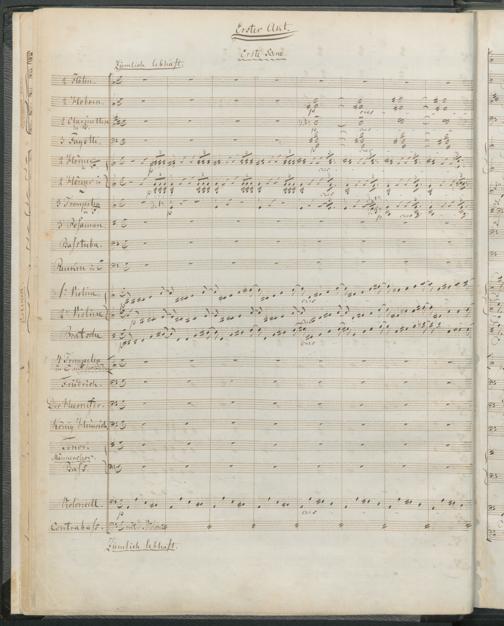 Erster Akt.
Erste Scene.
Ziemlich lebhaft.
2 Flöten.
2 Hoboen.
2 Clarinetten
3 Fagotte.
4 Hörner
4 Hörner
3 Trompeten
3 Posaunen
Basstuba.
Pauken
1e Violine
2e Violine
Bratsche
4 Trompeten
Friedrich.
Der Heerrufer.
König Heinrich
Tenor.
Männerchor.
Bass.
Violoncell.
p
cres
Contrabass.
Ziemlich lebhaft.